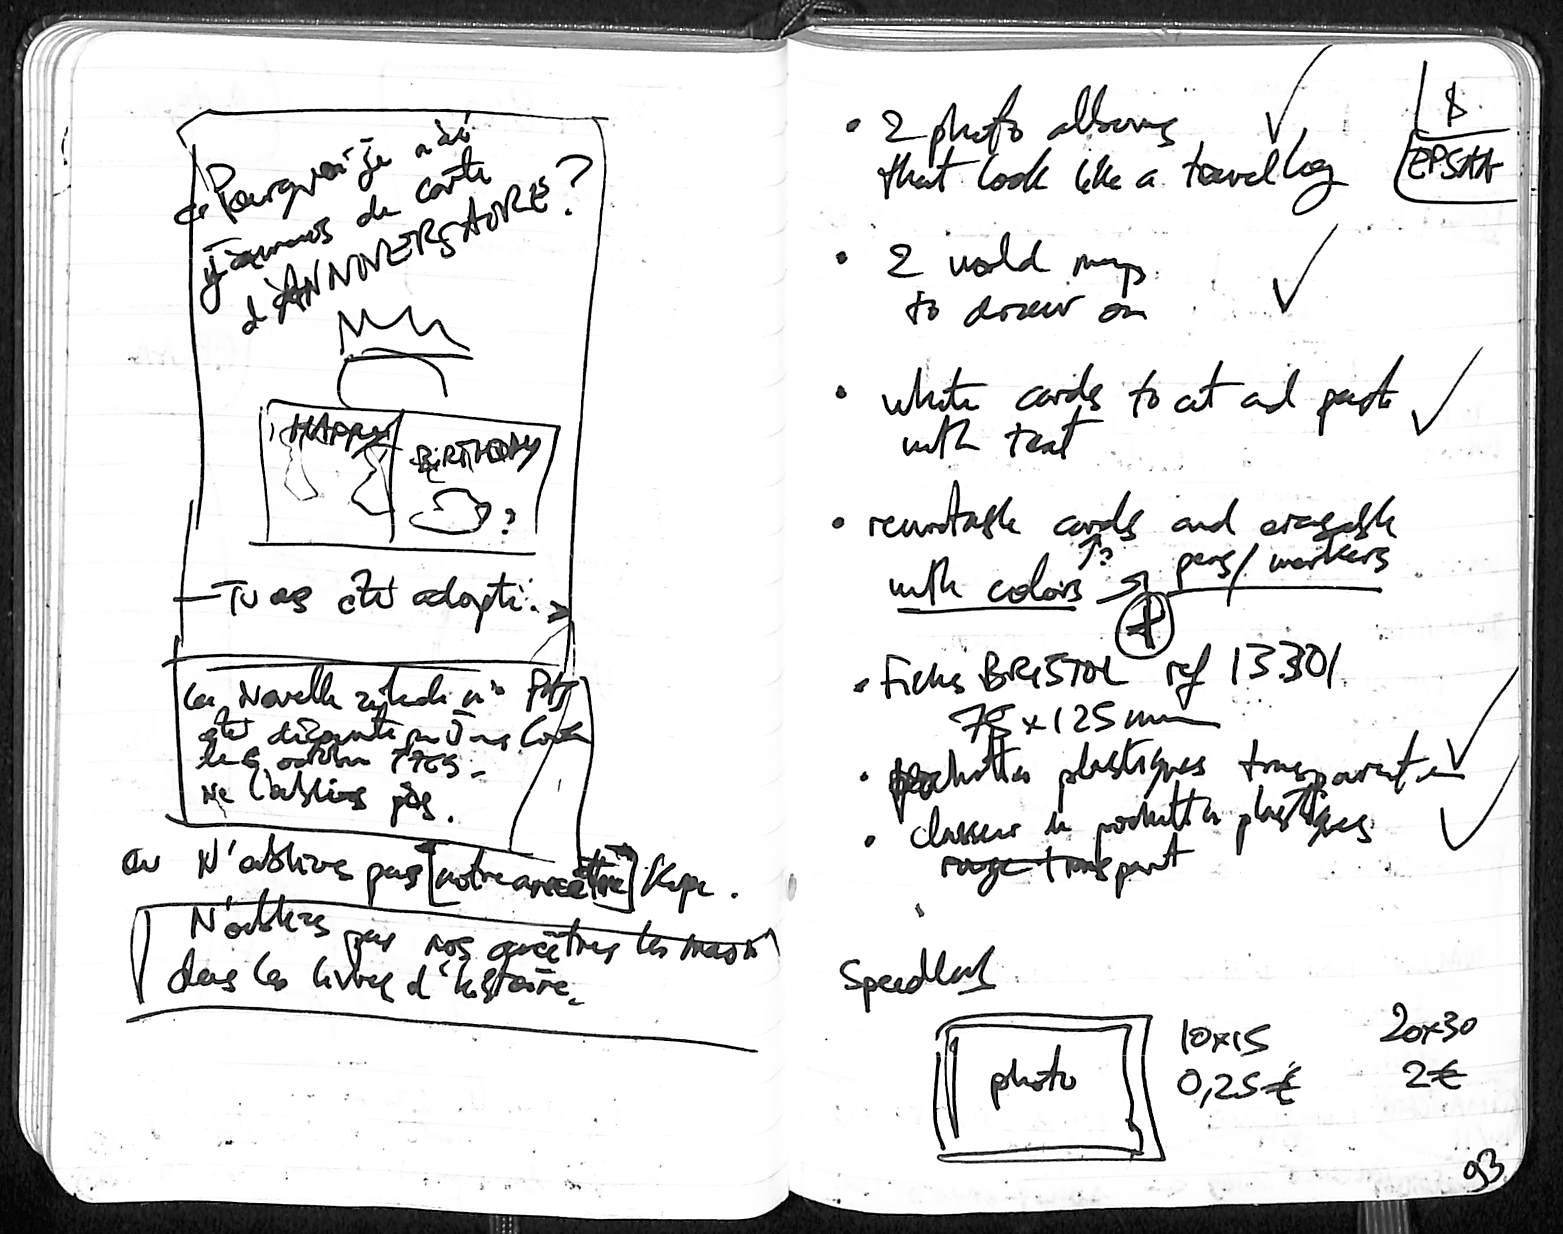 Pourquoi je n'ai
jamais de carte
d'ANNIVERSAIRE?
HAPPY
BIRTHDAY
?
— Tu as été adopté.
La Nouvelle n'a
été par
le 6 octobre
ne l'oublions pas.
ou N'oublions pas [notre ancêtre]
N'oublions pas nos ancêtres les
dans les livres d'histoire.
$
EPSAA
• 2 photo albums
that look like a travel log
• 2 world maps
to draw on
• white cards to cut and paste
with text
• rewritable cards and erasable
?
with colors pens / markers
+
• Fiches BRISTOL ref 13.301
75 x 125 mm
• pochettes plastiques transparentes
• classeur de pochettes plastiques
rouge transparent
photo
10x15
0,25€
20x30
2€
93